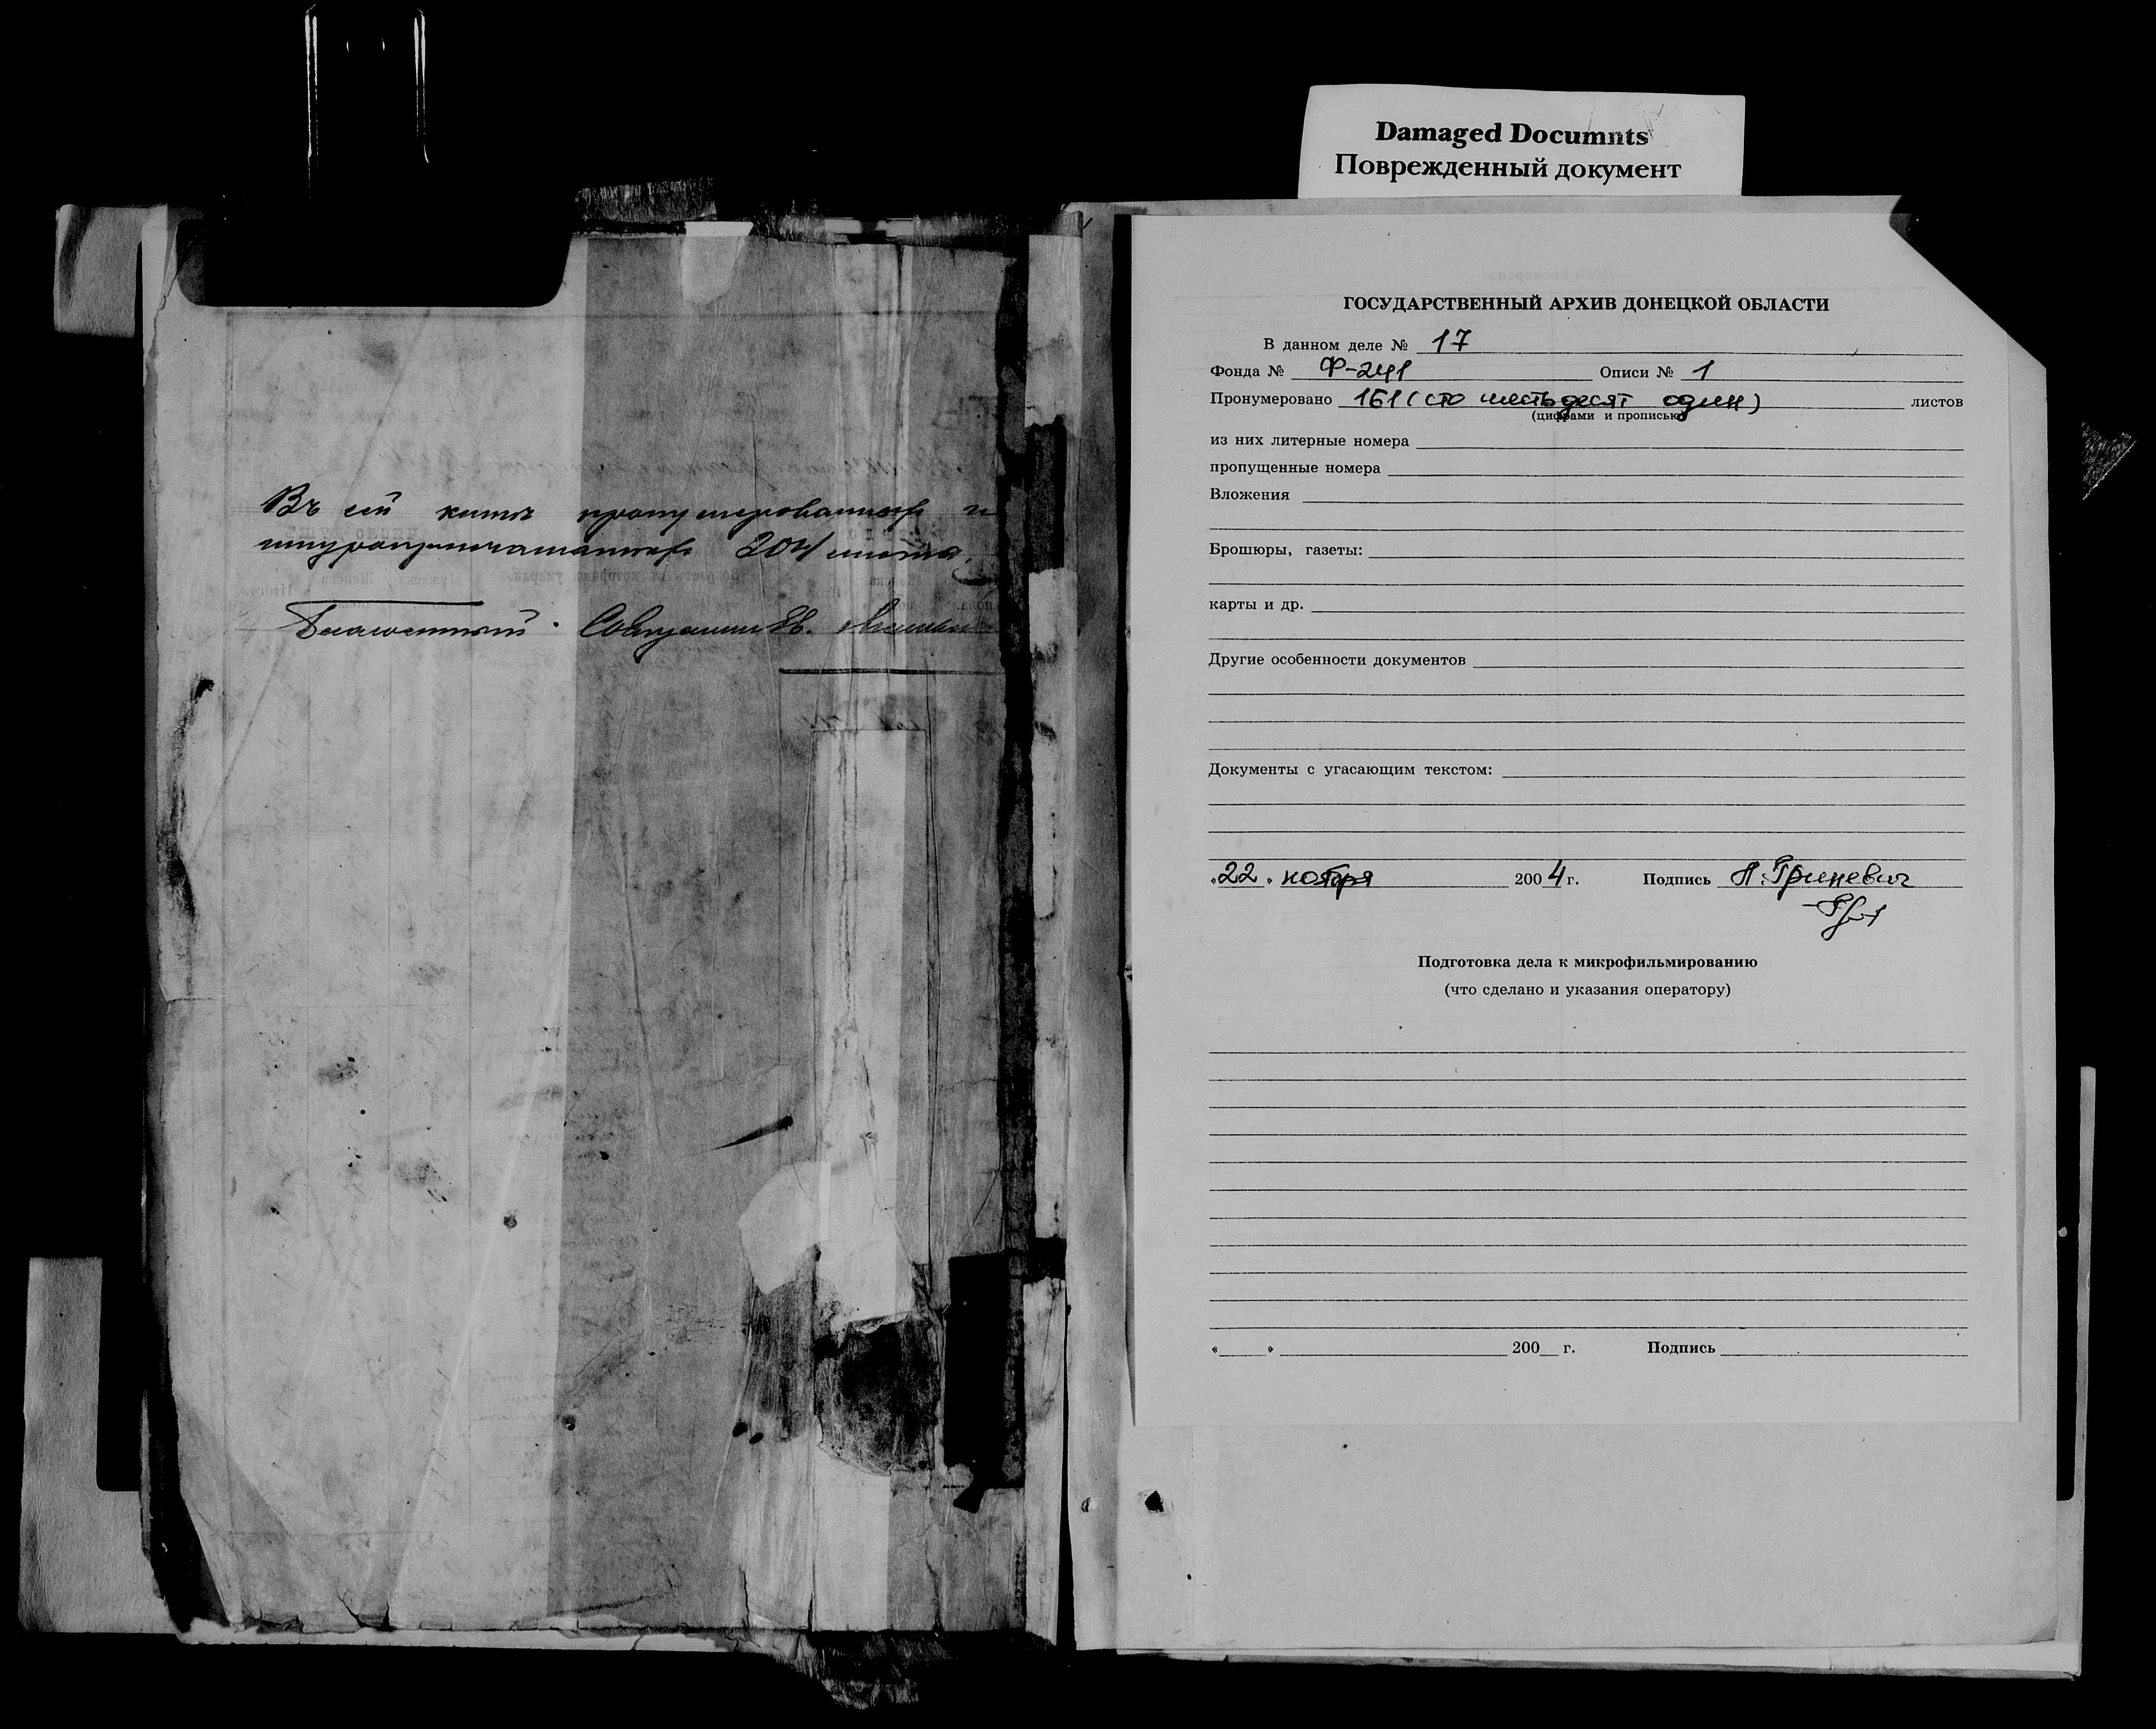 Damaged Documnts
Поврежденный документ
Въ сей книгѣ пронумерованныхъ и
шнуропечатанныхъ 204 листа.
Благочинный
ГОСУДАРСТВЕННЫЙ АРХИВ ДОНЕЦКОЙ ОБЛАСТИ
В данном деле № 17
Фонда № Ф-241 Описи № 1
Пронумеровано 161 (сто шестьдесят один) листов
(цифрами и прописью)
из них литерные номера
пропущенные номера
Вложения
Брошюры, газеты:
карты и др.
Другие особенности документов
Документы с угасающим текстом:
«22» ноября 2004 г. Подпись Л. Гриневич
Подготовка дела к микрофильмированию
(что сделано и указания оператору)
« » 200 г. Подпись